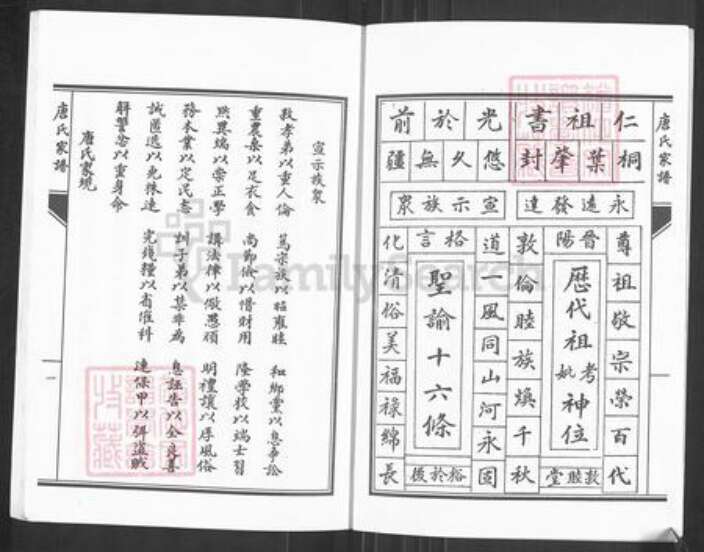 唐氏家譜
仁祖書光於前
桐葉肇封悠久無疆
永遠發達
宣示族衆
尊祖敬宗榮百代
晉陽
歷代祖考妣神位
敦睦堂
敦倫睦族煥千秋
道一風同山河永固
格言
聖諭十六條
裕於後
化清俗美福祿綿長
宣示族衆
敦孝弟以重人倫 篤宗族以昭雍睦 和鄉黨以息爭訟
重農桑以足衣食 尚節儉以惜財用 隆學校以端士習
黜異端以崇正學 講法律以儆愚頑 明禮讓以厚風俗
務本業以定民志 訓子弟以禁非為 息誣告以全良善
誡匿逃以免株連 完錢糧以省催科 連保甲以弭盜賊
解讐忿以重身命
唐氏家規
唐氏家譜
FamilySearch